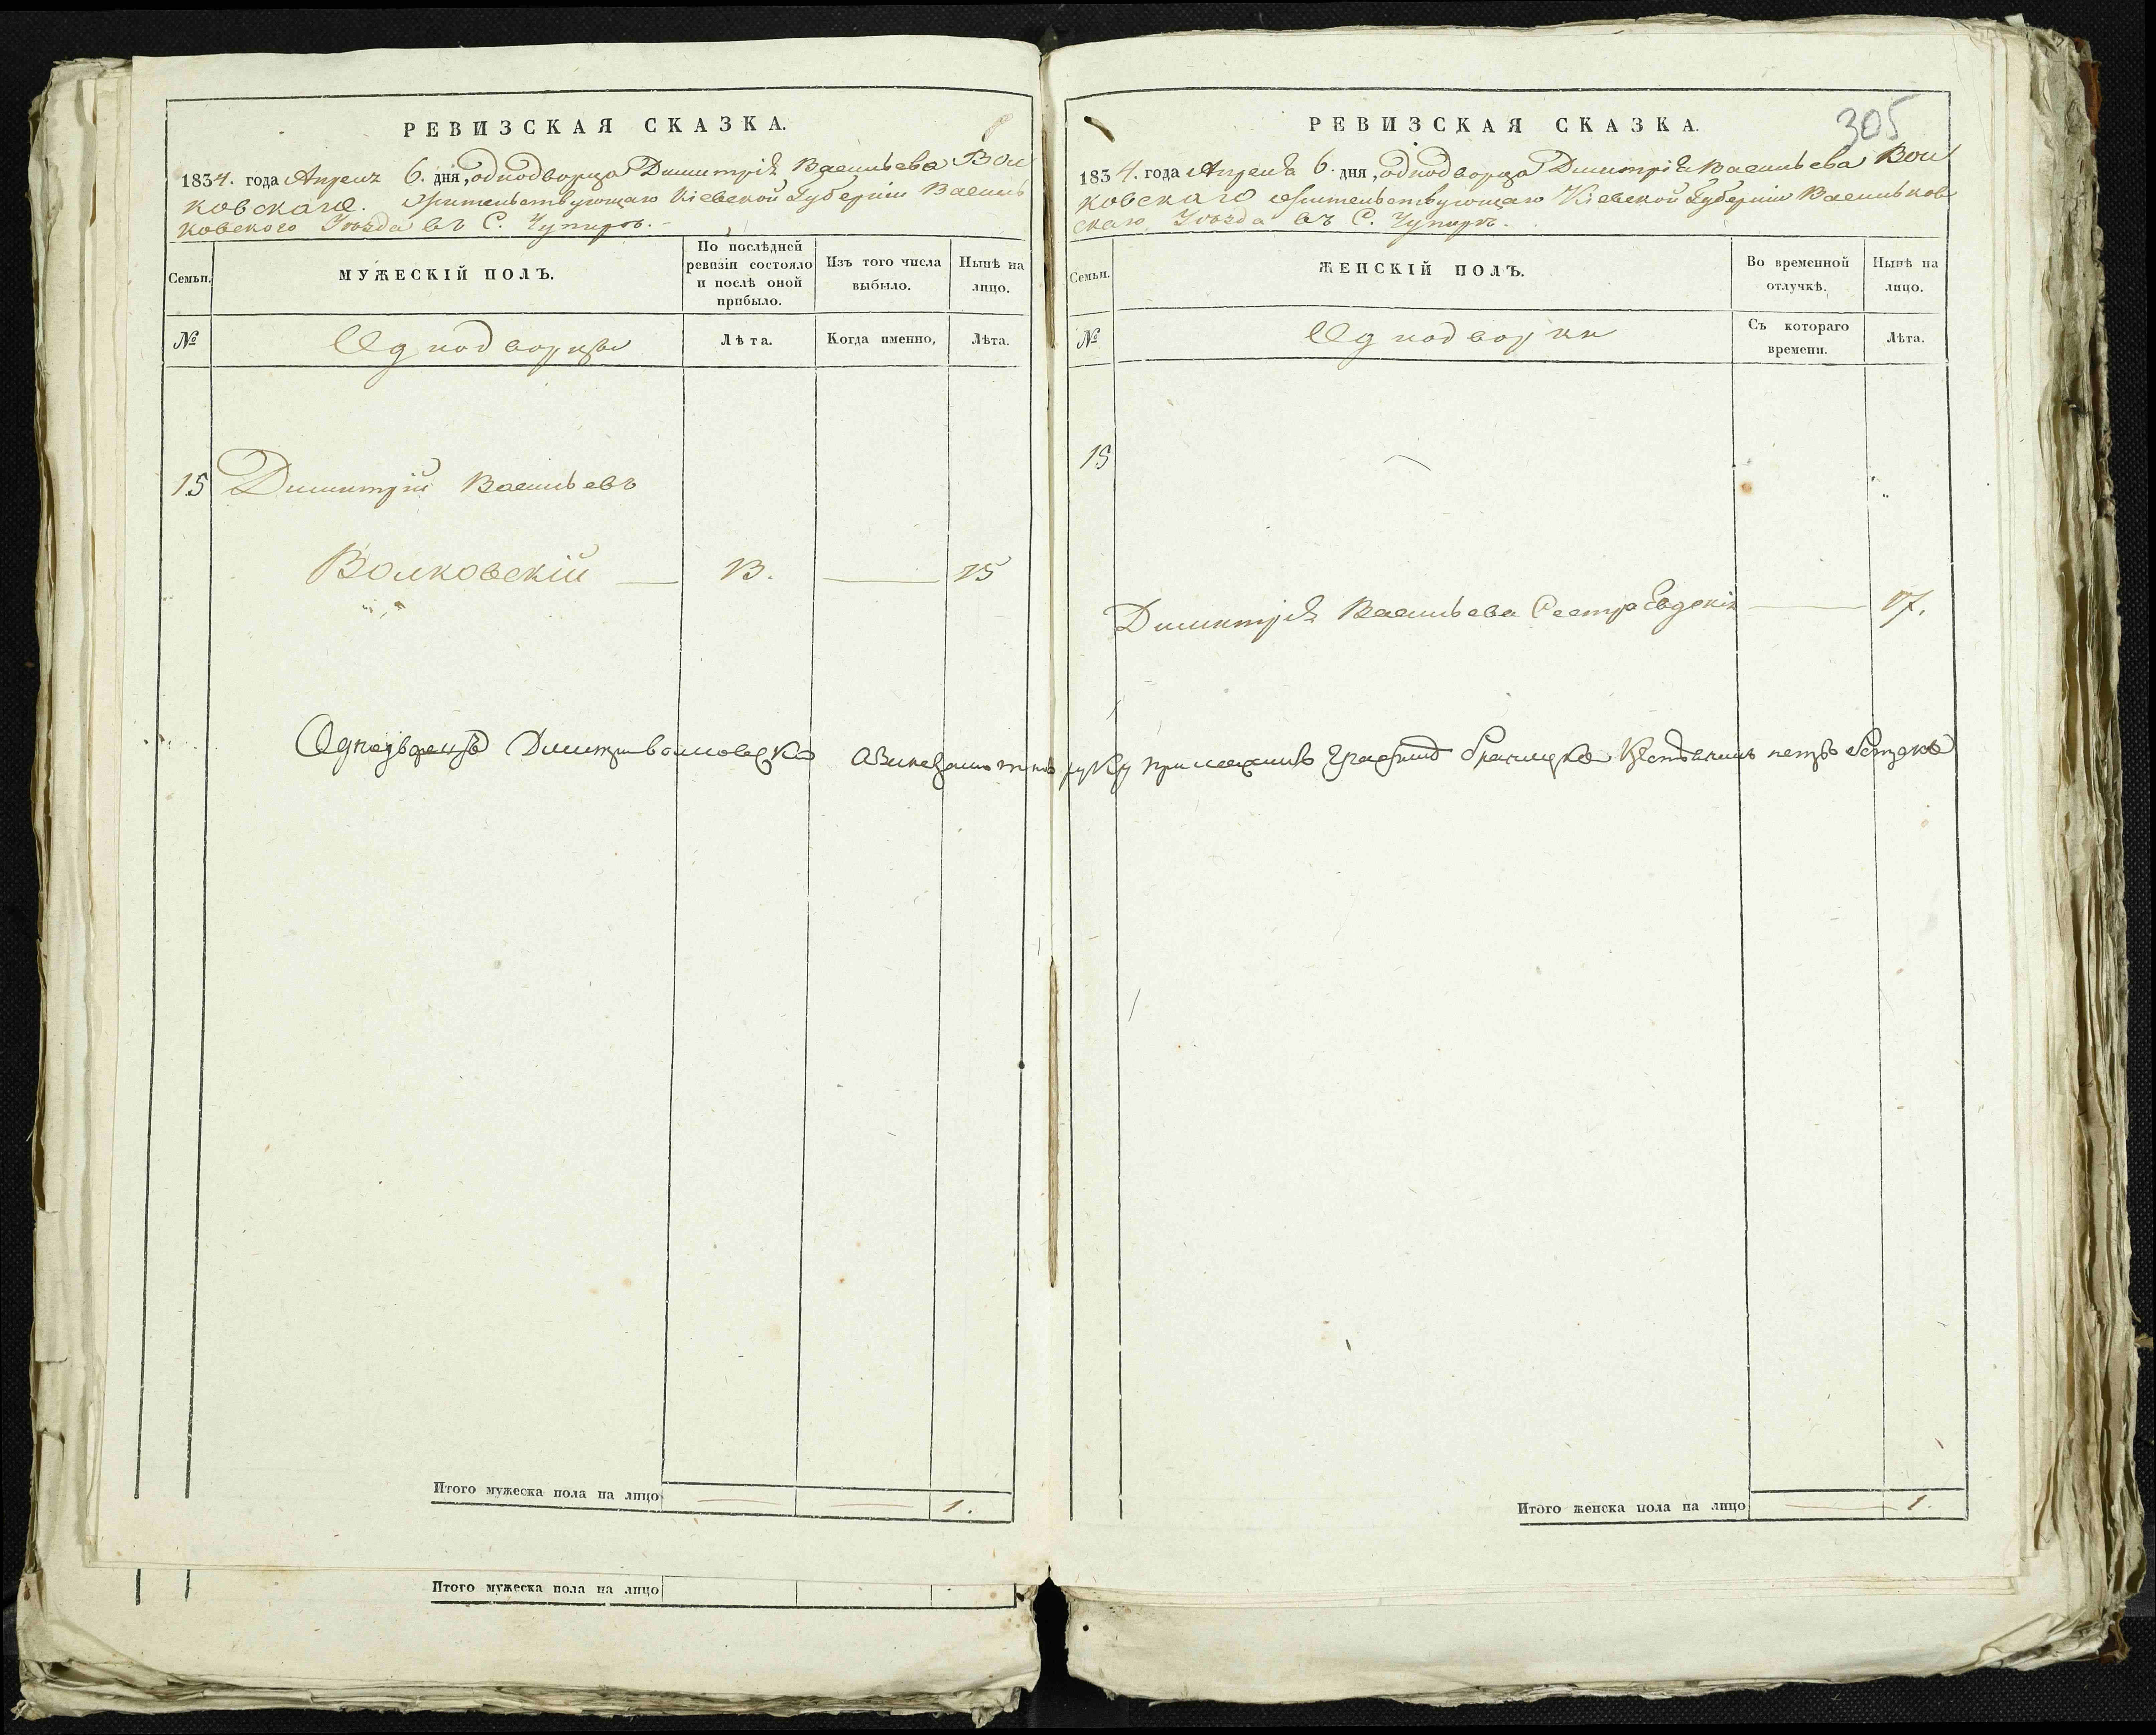 РЕВИЗСКАЯ СКАЗКА.
1834. года Апреля 6. дня, однодворца Димитрія Васильева Вол
ковскаго. жительствующаго Кіевской Губерніи Василь
ковского Уѣзда въ С. Чупирѣ.
Семьи.
МУЖЕСКІЙ ПОЛЪ.
По послѣдней
ревизіи состояло
и послѣ оной
прибыло.
Изъ того числа
выбыло.
Нынѣ на
лицо.
№
Однодворцы
Лѣта.
Когда именно,
Лѣта.
15 Димитрій Васильевъ
Волковскій — 13. — 25
Однодворецъ
Итого мужеска пола на лицо — — 1.
Итого мужеска пола на лицо
305
РЕВИЗСКАЯ СКАЗКА.
1834. года Апреля 6. дня, однодворца Димитрія Васильева Вол
ковскаго жительствующаго Кіевской Губерніи Васильков
скаго Уѣзда въ С. Чупирѣ.
Семьи.
ЖЕНСКІЙ ПОЛЪ.
Во временной
отлучкѣ.
Нынѣ на
лицо.
№
Однодворки
Съ котораго
времени.
Лѣта.
15
Димитрія Васильева Сестра Евдокія — 17.
руку
Итого женска пола на лицо — 1.